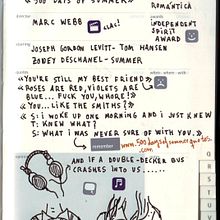 "500 DAYS OF SUMMER"
ROMÁNTICA
MARC WEBB
CLAC!
INDEPENDENT
SPIRIT
AWARD
JOSEPH GORDON LEVITT - TOM HANSEN
ZOOEY DESCHANEL - SUMMER
«YOU'RE STILL MY BEST FRIEND»
«ROSES ARE RED, VIOLETS ARE
BLUE... FUCK YOU, WHORE!
«YOU... LIKE THE SMITHS?
«S: I WOKE UP ONE MORNING AND I JUST KNEW
T: KNEW WHAT?
S: WHAT I WAS NEVER SURE OF WITH YOU.»
remember
www.500daysofsummerquotes
.com
AND IF A DOUBLE-DECKER BUS
CRASHES INTO US.....